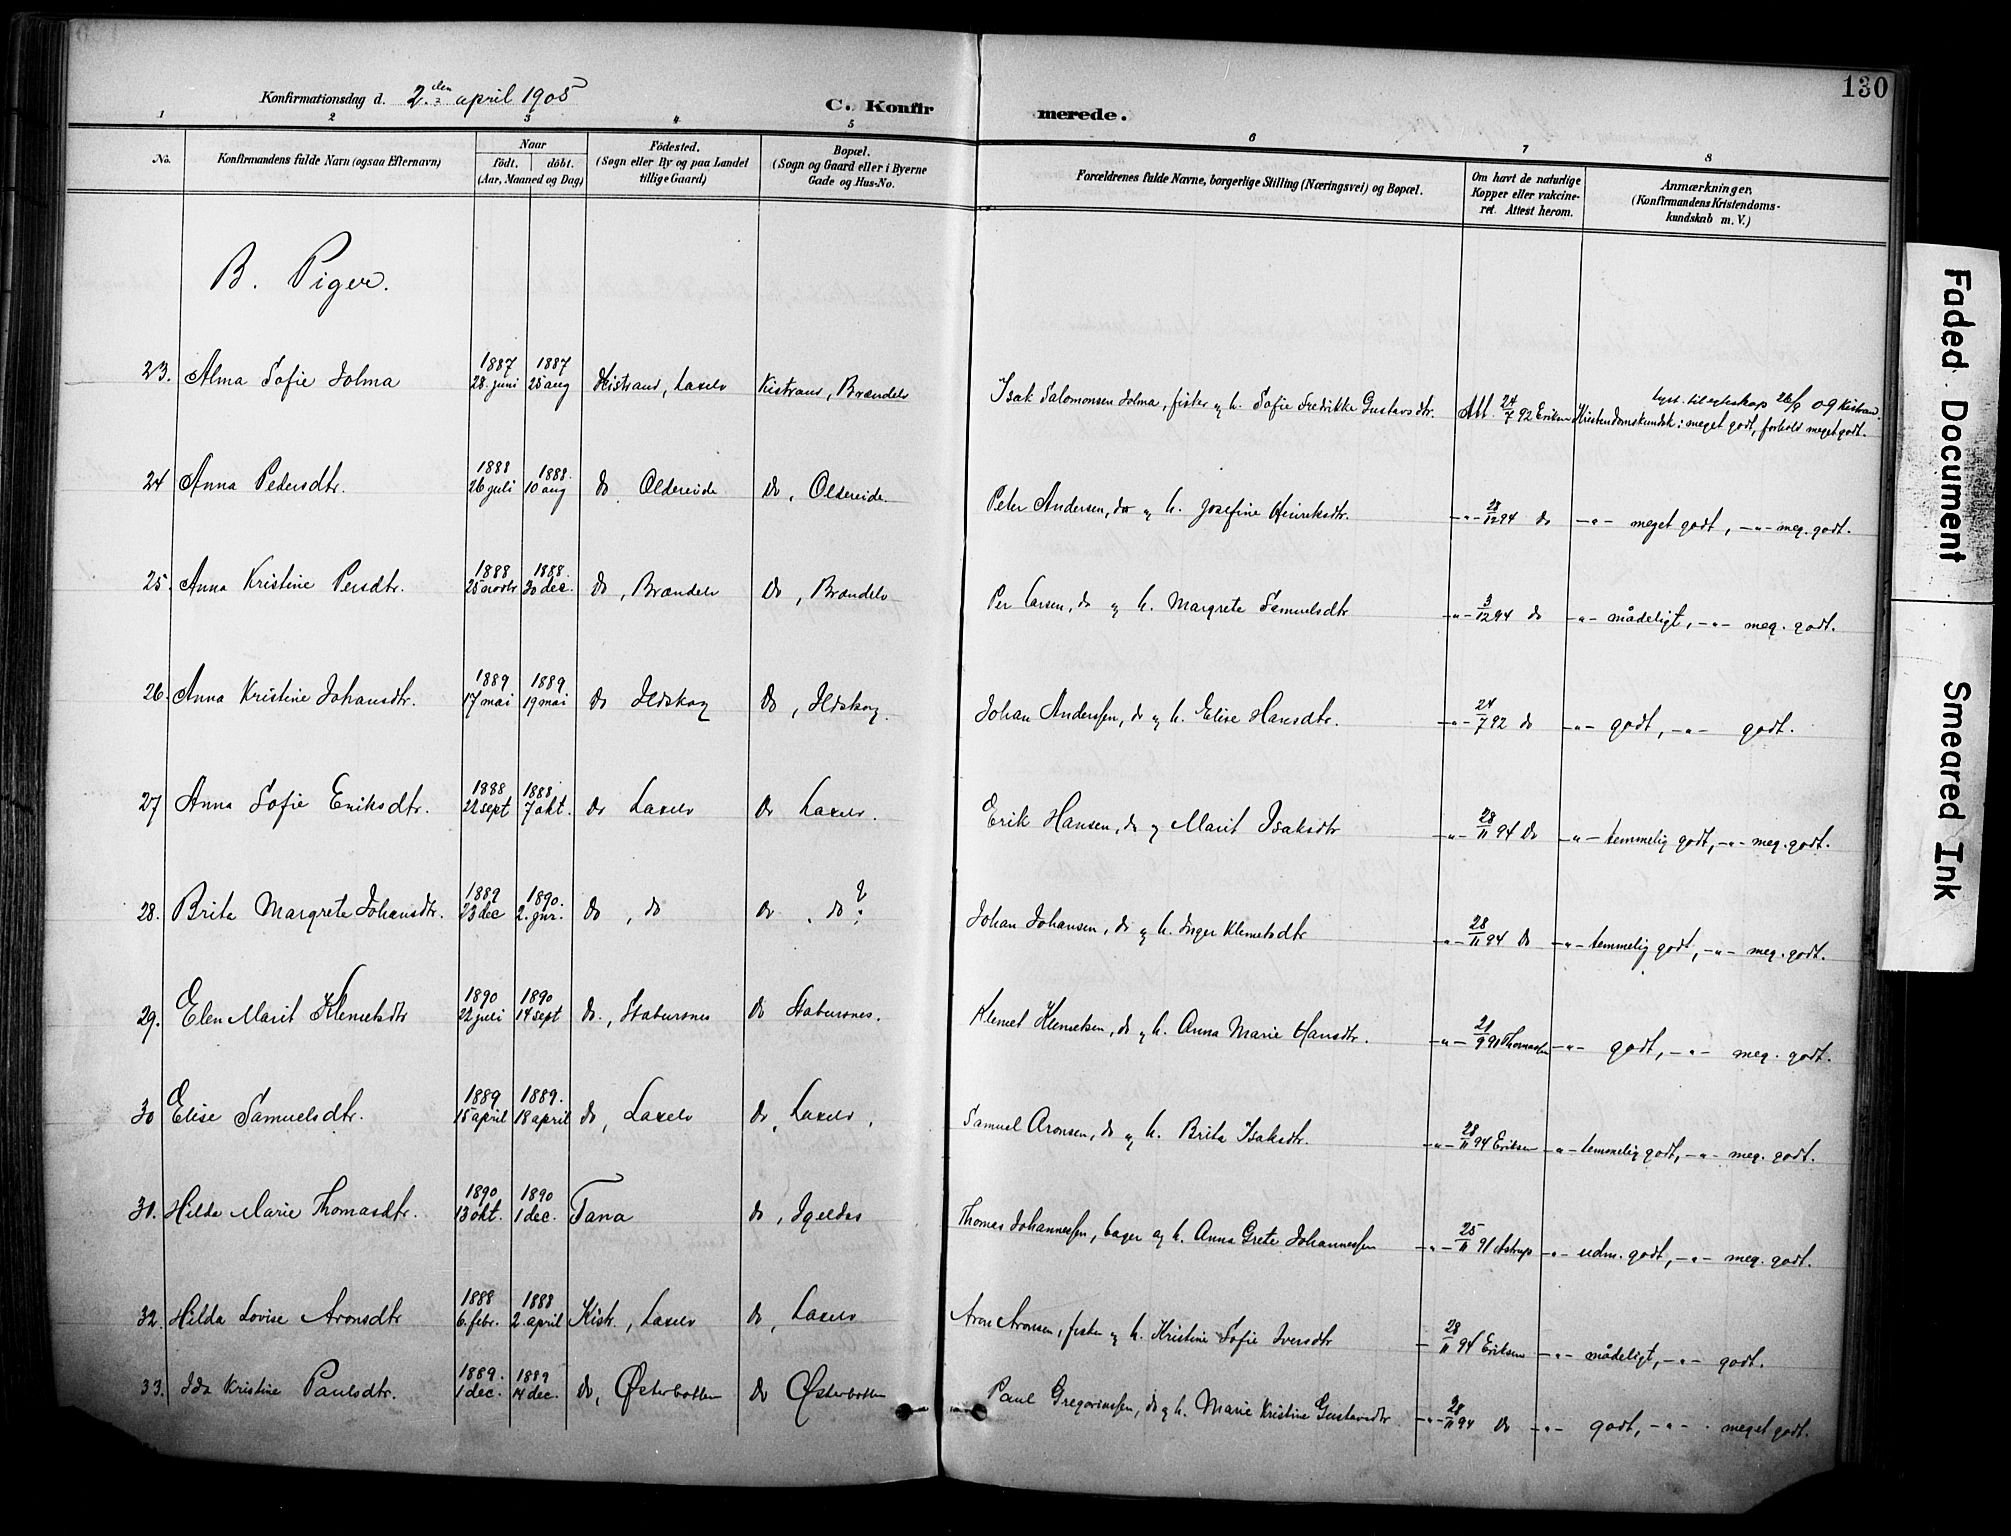 130
Konfirmationsdag d. 2.den april 1905
C. Konfirmerede.
1 2 3 4 5 6 7 8
No.
Konfirmandens fulde Navn (ogsaa Efternavn)
Naar
født. døbt.
(Aar, Maaned og Dag)
Fødested.
(Sogn eller By og paa Landet
tillige Gaard)
Bopæl.
(Sogn og Gaard eller i Byerne
Gade og Hus-No.
Forældrenes fulde Navne, borgerlige Stilling (Næringsvei) og Bopæl.
Om havt de naturlige
Kopper eller vakcine-
ret. Attest herom.
Anmærkninger,
(Konfirmandens Kristendoms-
kundskab m. V.)
B. Piger.
23. Alma Sofie Jolma 1887 28. juni 1887 25 aug Kistrand, Laxelv Kistrand, Brændelv Isak Salomonsen Jolma, fisker og h. Sofie Fredrikke Gustavsdtr. Att. 24/7 92 Eriksen Kristendomskundsk: meget godt, forhold meget godt.
lyst. til egteskap 26/9 09 Kistrand
24 Anna Pedersdtr. 1888 26 juli 1888. 10 aug do Oldereide do, Oldereide Peter Andersen, do og h. Josefine Henriksdtr. -"- 28/12 94 do -"- meget godt, -"- meg. godt.
25. Anna Kristine Persdtr. 1888 25 novbr 1888. 30 dec. do, Brændelv do, Brændelv Per Larsen, do og h. Margrete Samuelsdtr -"- 3/12 94 do -"- mådeligt, -"- meg. godt.
26. Anna Kristine Johansdtr. 1889 17 mai 1889 19 mai do Ildskog do, Ildskog. Johan Anderssen, do og h. Elise Hansdtr. -"- 24/7 92 do -"- godt, -"- godt.
27 Anna Sofie Eriksdtr. 1888 22 sept 1888. 7 okt. do Laxelv do Laxelv. Erik Hansen, do og Marit Isaksdtr -"- 28/11 94 do -"- temmelig godt, -"- meg. godt.
28. Brita Margrete Johansdtr. 1889 23 dec 1890. 2. jnr. do, do do, do ? Johan Johansen, do og h. Inger Klemetsdtr -"- 28/11 94 do -"- temmelig godt, -"- meg. godt.
29. Elen Marit Klemetsdtr 1890 22 juli 1890 14 sept do., Stabursnes do Stabursnes. Klemet Klemetsen, do og h. Anna Marie Hansdtr. -"- 21/9 91 Thomassen -"- godt, -"- meg. godt.
30 Elise Samuelsdtr. 1889 15 april 1889. 18 april do, Laxelv do, Laxelv. Samuel Aronsen, do og h. Brita Isaksdtr. -"- 28/11 94 Eriksen -"- temmelig godt, -"- meg. godt.
31. Hilda Marie Thomasdtr. 1890 13 okt. 1890 1 dec. Tana do, Igeldas Thomas Johannessen, bager og h. Anna Grete Johannessen -"- 25/11 91 Astrup -"- udm. godt, -"- meg. godt.
32. Hilda Lovise Aronsdtr 1888 6. febr. 1888 2. april Kistr., Laxelv do, Laxelv Aron Aronsen, fisker og h. Kristine Sofie Iversdtr - 28/11 94 Eriksen -"- mådeligt, -"- godt.
33. Ida Kristine Paulsdtr. 1889. 1 dec. 1889 14 dec. do, Østerbotten do Østerbotten Paul Gregoriussen, do og h. Marie Kristine Gustavsdtr -"- 28/11 94 do -"- godt, -"- meget godt.
Faded Document
Smeared Ink